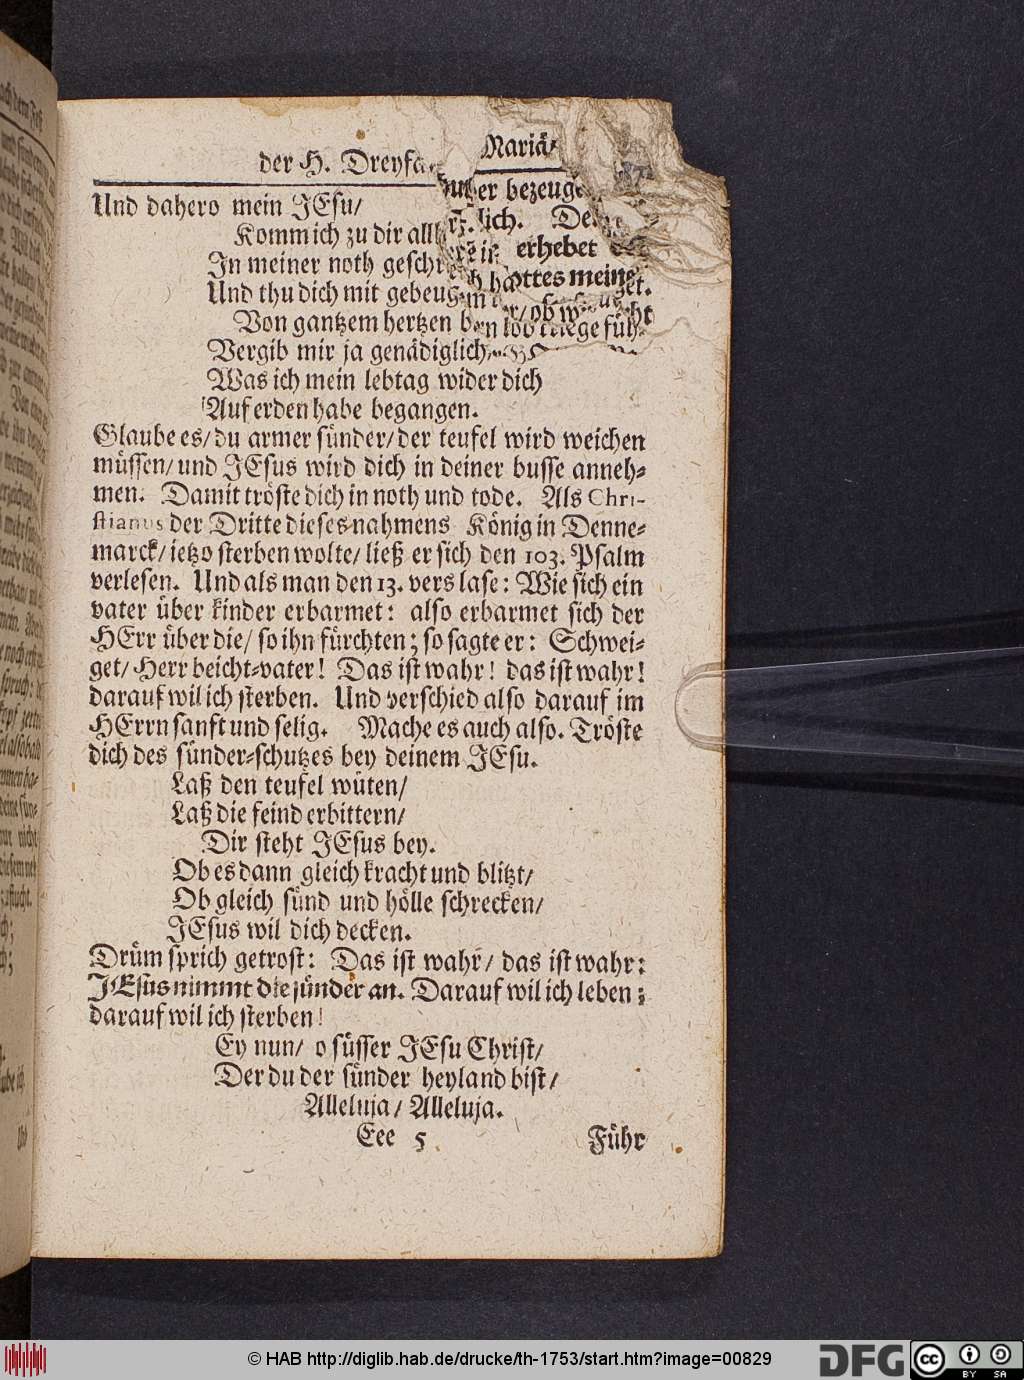 der H. Dreyfa Mariä/
Und dahero mein JEsu/ bezeuge
Komm ich zu dir all lich. De
In meiner noth gesch erhebet
Und thu dich mit gebeug ottes meine et.
Von gantzem hertzen ob
Vergib mir ja genädiglich/
Was ich mein lebtag wider dich
Auf erden habe begangen.
Glaube es/ du armer sünder/ der teufel wird weichen
müssen/ und JEsus wird dich in deiner busse anneh-
men. Damit tröste dich in noth und tode. Als Chri-
stianus der Dritte dieses nahmens König in Denne-
marck/ ietzo sterben wolte/ ließ er sich den 103. Psalm
verlesen. Und als man den 13. vers lase: Wie sich ein
vater über kinder erbarmet: also erbarmet sich der
HErr über die/ so ihn fürchten; so sagte er: Schwei-
get/ Herr beicht-vater! Das ist wahr! das ist wahr!
darauf wil ich sterben. Und verschied also darauf im
HErrn sanft und selig. Mache es auch also. Tröste
dich des sünder-schutzes bey deinem JEsu.
Laß den teufel wüten/
Laß die feind erbittern/
Dir steht JEsus bey.
Ob es dann gleich kracht und blitzt/
Ob gleich sünd und hölle schrecken/
JEsus wil dich decken.
Drüm sprich getrost: Das ist wahr/ das ist wahr:
JEsus nimmt die sünder an. Darauf wil ich leben;
darauf wil ich sterben!
Ey nun/ o süsser JEsu Christ/
Der du der sünder heyland bist/
Alleluja/ Alleluja.
Eee 5 Führ
© HAB http://diglib.hab.de/drucke/th-1753/start.htm?image=00829 DFG cc BY SA